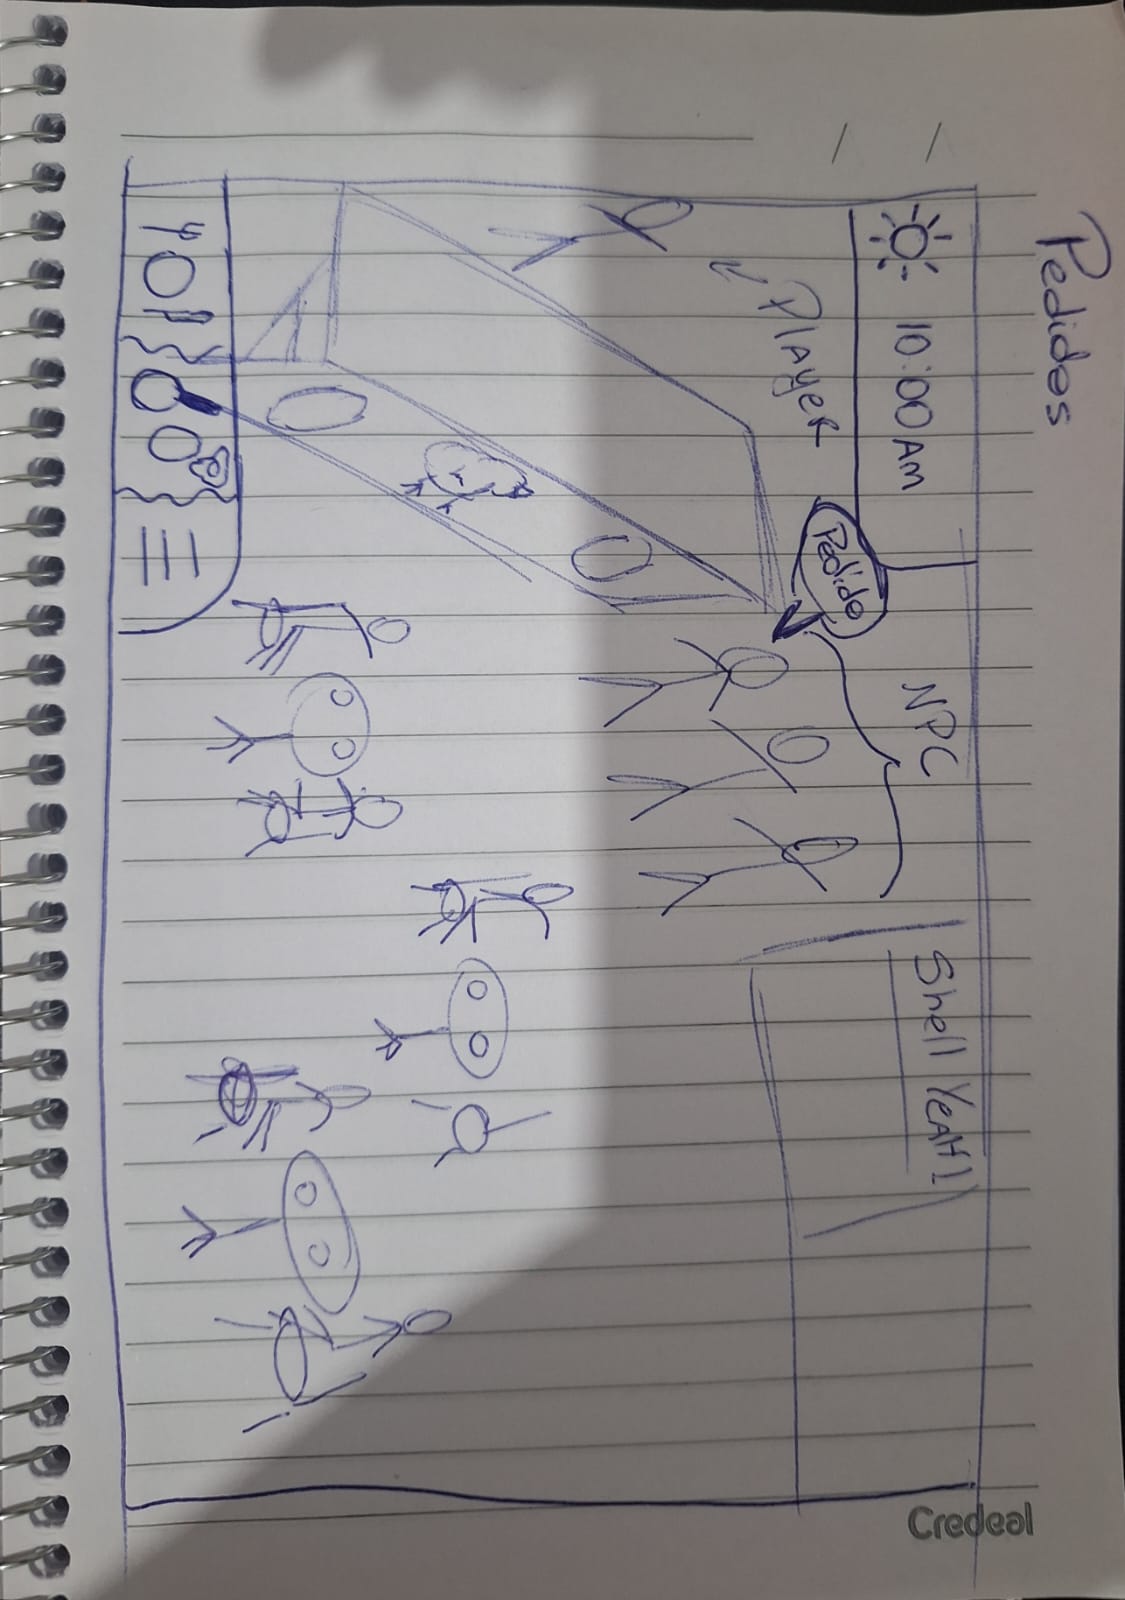 Pedidos
10:00 AM
NPC
Shell YeAH!
Pedido
PlAyeR
Credeal